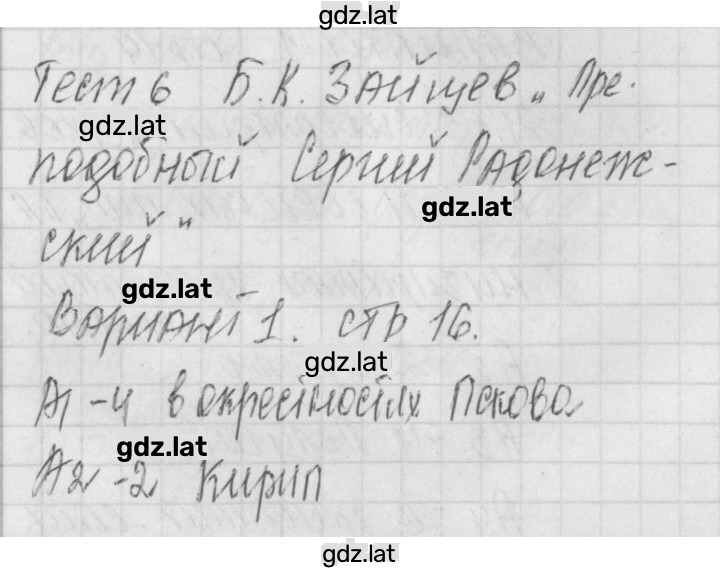 gdz.lat
Тест 6 Б.К. Зайцев „Пре-
gdz.lat
подобный Сергий Радонеж-
gdz.lat
ский"
gdz.lat
Вариант 1. стр 16.
gdz.lat
А1 - 4 в окрестностях Пскова
gdz.lat
А2 - 2 Кирил
gdz.lat